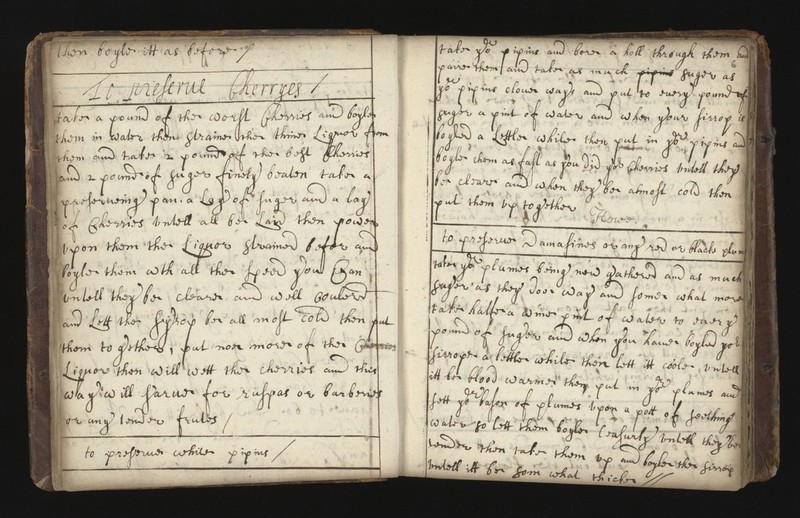 then boyle itt as before /
To preserue Cherryes /
take a pound of the worst Cherries and boyle
them in water then straine the thinn Liquor from
them and take 2 pound of the best Cherries
and 2 pound of suger finely beaten take a
preserueing pan: a Lay of suger and a lay
of Cherries vntell all bee Laid then power
vpon them the Liquor strained befor and
boyle them wth all the speed you Can
vntell they be cleare and well Coulered
and Lett the sirrop be all most Cold then put
them to gether, put noe more of the Cherries
Liquor then will wett the cherries and this
way will sarue for raspas or barberies
or any tender frutes /
to preserue white pipins /
take yor pipins and bore a holl through them and
pare them and take as much pipins suger as
yor pipins clouer ways and put to euery pound of
suger a pint of water and when your sirrop is
boyled a Lettle while then put in yor pipins and
boyle them as fast as you did yor Cherries vntell they
bee cleare and when they be almost cold then
put them vp together
to preserue Damasines or any red or black plum
take yor plumes being new gathered and as much
suger as they door way and some what more
take halfe a wine pint of water to euery
pound of suger and when you haue boyled yor
sirrope a lettle while then lett itt coole vntell
itt be blood warme then put in yor plumes and
sett yor bason of plumes vpon a pott of seething
water so lett them boyle leasurly vntell they be
tender then take them vp and boyle the sirrop
vntell itt be som what thicke /